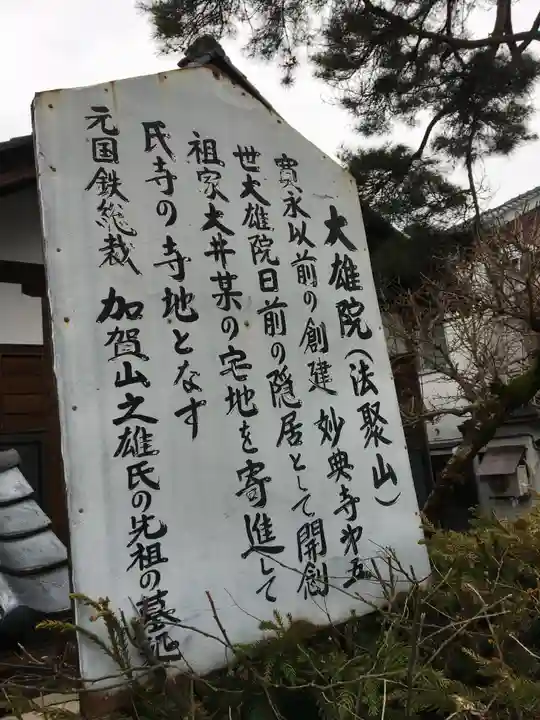 大雄院(法聚山)
寛永以前の創建 妙典寺㐧五
世大雄院日前の隠居として開創
祖家大井某の宅地を寄進して
氏寺の寺地となす
元国鉄総裁 加賀山之雄氏の先祖の墓